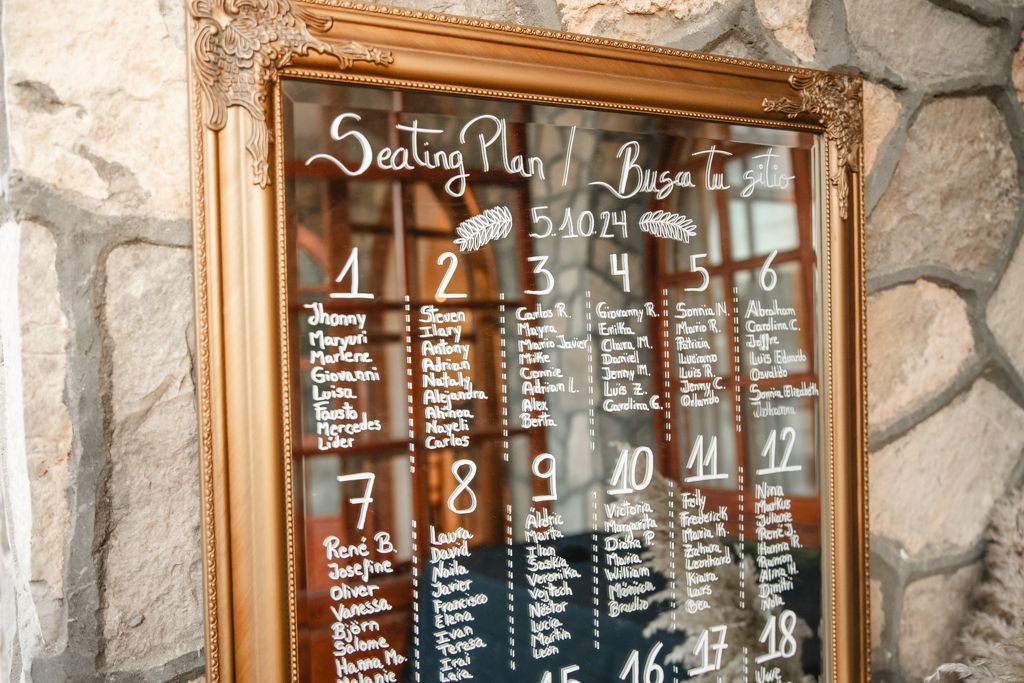 Seating Plan / Busca tu sitio
5.10.24
1
Jhonny
Maryuri
Marlene
Giovanni
Luisa
Fausto
Mercedes
Lider
2
Steven
Ilary
Antony
Adrian
Nataly
Alejandra
Nayeli
Carlos
3
Carlos R.
Mayra
Mario Javier
Milke
Connie
Adrian L.
Alex
Berta
4
Giovanny R.
Erika
Clara M.
Daniel
Jenny M.
Luis Z.
Carolina G.
5
Sonnia N.
Mario R.
Patricia
Luciano
Luis R.
Jenny C.
Orlando
6
Abraham
Carolina C.
Joffre
Luis Eduardo
Osvaldo
Sonnia Elizabeth
Johanna
7
René B.
Josefine
Oliver
Vanessa
Björn
Salome
Hanna Mo.
Melanie
8
Laura
David
Naila
Javier
Francisco
Elena
Ivan
Teresa
Irai
Laia
9
Aldric
Marta
Ilan
Saskia
Veronika
Vojtech
Néstor
Lucia
Martin
León
10
Victoria
Margarita
Diana P.
Maria
William
Mónica
Braulio
11
Frederick
Maria K.
Zahara
Leonhard
Kiara
Lars
Bea
12
Nina
Markus
Juliane
René J.
Hanna R.
Ramon
Alina K.
Dimitri
Nola
15
16
17
18
Uwe